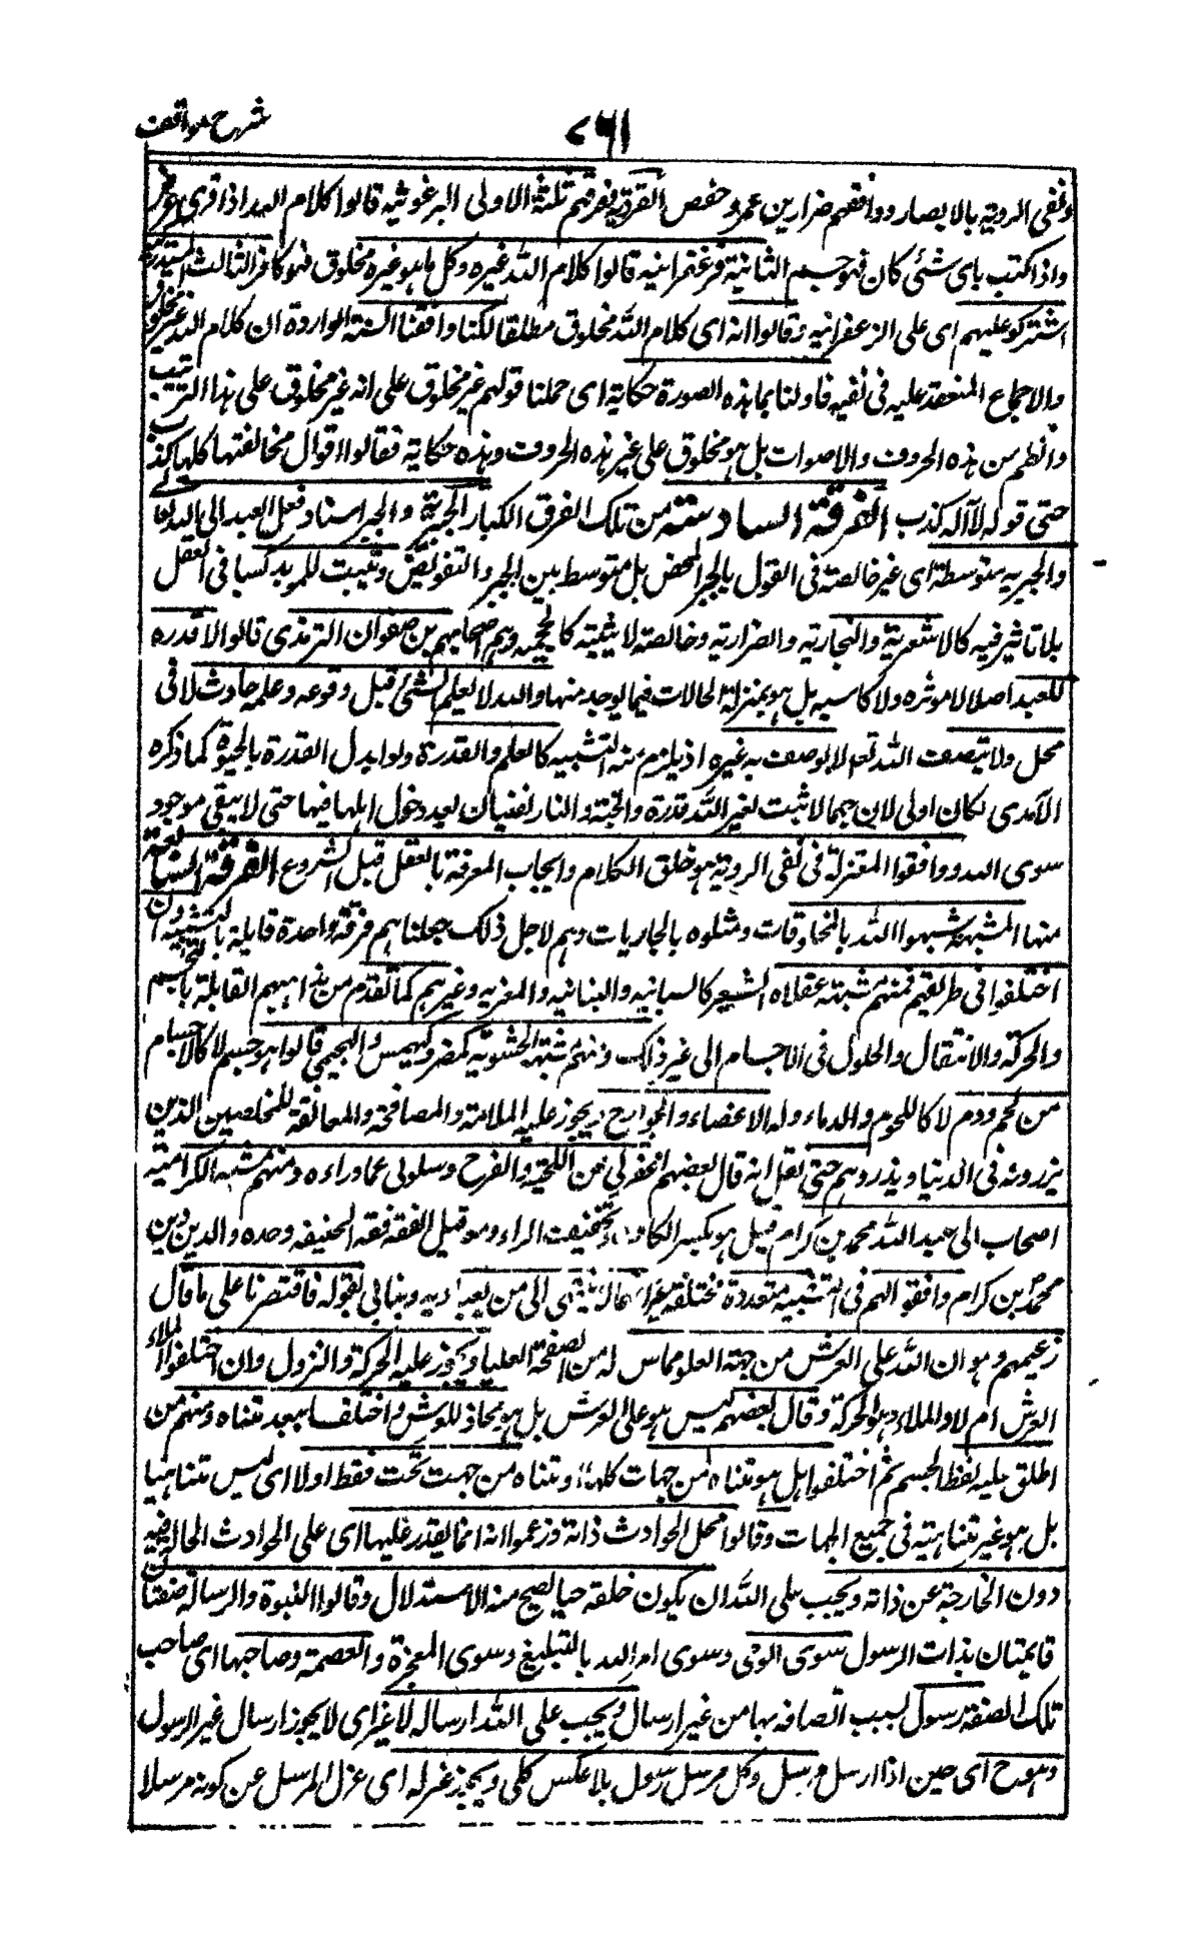 شرح مواقف
٧٦١
ونفى الروية بالابصار ووافقهم ضرار بن عمرو وحفص القرد وفرقهم ثلثة الاولى البرغوثية قالوا كلام الله اذا قرى عرض
واذا كتب باى شئى كان فهو جسم الثانية الزعفرانية قالوا كلام الله غيره وكل ما هو غيره مخلوق فهو كافر الثالث المستدركة
استدركوا عليهم اى على الزعفرانيه وقالوا انه اى كلام الله مخلوق مطلقا لكنا وافقنا السنة الواردة ان كلام الله غير مخلوق
والاجماع المنعقد عليه فى نفيه فاولنا بما هذه الصورة حكاية اى حملنا قولهم غير مخلوق على انه غير مخلوق على هذا الترتيب
والنظم من هذه الحروف والاصوات بل هو مخلوق على غير هذه الحروف وهذه حكاية فقالوا اقوال مخالفتها كلها كذب
حتى قوله لا اله كذب الفرقة السادسة من تلك الفرق الكبار الجبرية والجبر اسناد فعل العبد الى الله تعالى
والجبريه متوسطة اى غير خالصة فى القول بالجبر المحض بل متوسط بين الجبر والتفويض وتثبت للعبد كسبا فى الفعل
بلا تاثير فيه كالاشعرية والنجارية والضرارية وخالصة لا تثبته كالجهميه وهم اصحاب جهم بن صفوان الترمذى قالوا لا قدره
للعبد اصلا لا موثره ولا كاسبه بل هو بمنزلة الجمادات فيما يوجد منها والله لا يعلم الشئ قبل وقوعه وعلمه حادث لا فى
محل ولا يتصف الله تعالى بما يوصف به غيره اذ يلزم منه التشبيه كالعلم والقدرة ولو ابدل القدرة بالحيوة كما ذكره
الآمدى لكان اولى لان جهما لا يثبت لغير الله قدرة والجنة والنار تفنيان بعد دخول اهلهما فيها حتى لا يبقى موجود
سوى الله ووافقوا المعتزلة فى نفى الروية وخلق الكلام وايجاب المعرفة بالعقل قبل الشروع الفرقة السابعة
منها المشبهة شبهوا الله بالمخلوقات ومثلوه بالحادثات وهم لاجل ذلك جعلناهم فرقة واحدة قايلة بالتشبيه وان
اختلفوا فى طريقهم فمنهم مشبهة غلاة الشيعة كالسبانيه والبنانيه والمغريه وغيرهم كما تقدم من مذاهبهم القايلة بالتجسيم
والحركة والانتقال والحلول فى الاجسام الى غير ذلك ومنهم مشبهة الحشوية كمضر وكهمس والهجيمى قالوا هو جسم لا كالاجسام
من لحم ودم لا كاللحوم والدماء وله الاعضاء والجوارح ويجوز عليه الملامسة والمصافحة والمعانقة للمخلصين الذين
يزرونه فى الدنيا ويزورهم حتى نقل انه قال بعضهم اعفونى عن اللحية والفرج وسلونى عما وراءه ومنهم مشبه الكراميته
اصحاب ابى عبد الله محمد بن كرام قيل هو بكسر الكاف وتخفيف الراء ... قيل الفقه فقه الحنيفه وحده والدين دين
محمد بن كرام واقوالهم فى التشبيه متعددة مختلفة غير انها لا تنتهى الى من يعبأ به ويبالى بقوله فاقتصرنا على ما قال
زعيمهم وهو ان الله على العرش من جهة العلو مماس له من الصفحة العليا ويجوز عليه الحركة والنزول وان اختلفوا املاء
العرش ام لا والملاء ... وقال بعضهم ليس هو على العرش بل هو محاذ للعرش واختلف ابعد متناه ومنهم من
اطلق عليه لفظ الجسم ثم اختلفوا هل هو متناه من جهات كلها او متناه من جهت تحت فقط اولا اى ليس متناهيا
بل هو غير متناهية فى جميع الجهات وقالوا محل الحوادث ذاته وزعموا انه انما يقدر عليها اى على الحوادث الحالة فيه
دون الخارجة عن ذاته ويجب على الله ان يكون خلقه حيا يصح منه الاستدلال وقالوا النبوة والرسالة صفتان
قايمتان بذات الرسول سوى الوحى وسوى امر الله بالتبليغ وسوى المعجزة والعصمة وصاحبها اى صاحب
تلك الصفة رسول بسبب اتصافه بها من غير ارسال ويجب على الله ارساله لا غير اى لا يجوز ارسال غير الرسول
وهو ح اى حين اذا ارسل مرسل وكل مرسل رسول بلا عكس كلى ويجوز عزله اى عزل المرسل عن كونه مرسلا